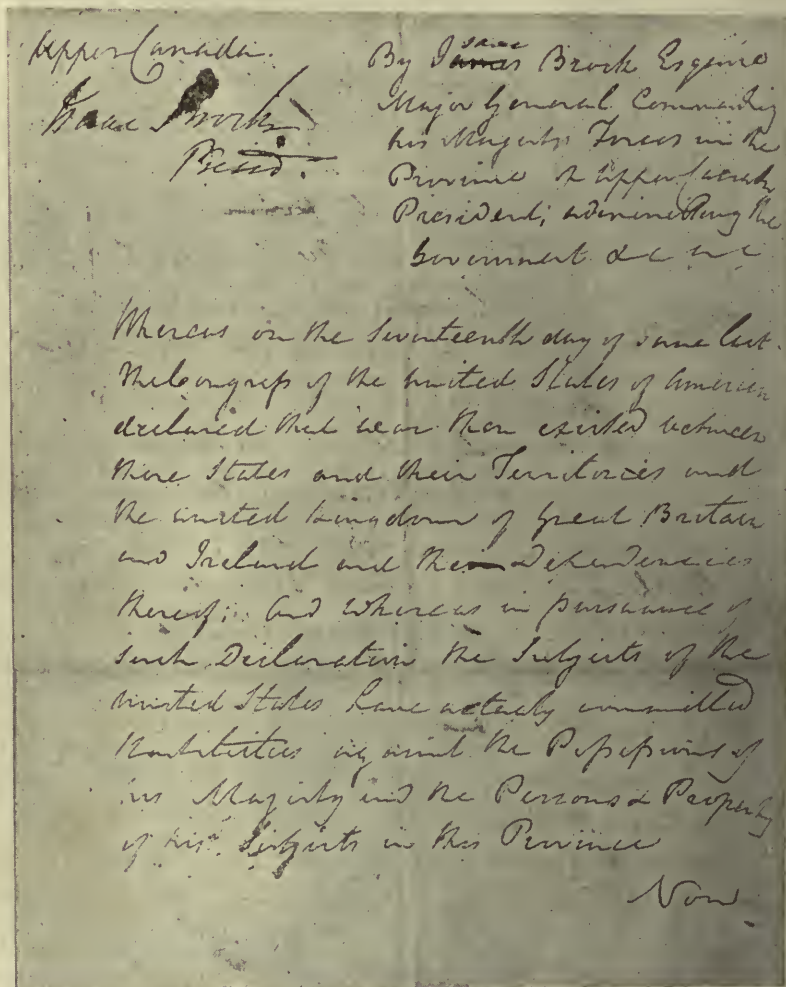 Upper Canada.
Isaac Brock
Presid.
By Isaac Brock Esquire
Major General Commanding
his Majesty's Forces in the
Province of Upper Canada
President, administring the
Government &c &c
Whereas on the Seventeenth day of June last
the Congress of the united States of America
declared that war then existed between
those States and their Territories and
the united Kingdom of Great Britain
and Ireland and the Dependencies
thereof; And whereas in pursuance of
such Declaration the Subjects of the
united States have actually committed
Hostilities against the Possessions of
his Majesty and the Persons & Property
of his Subjects in this Province
Now